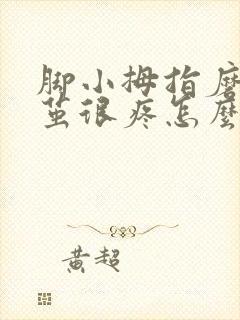 脚小拇指磨
茧很疼怎麼
黄超